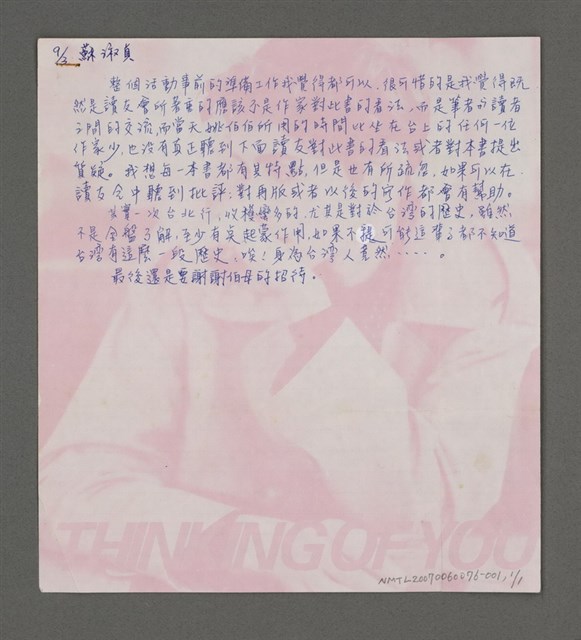 9/3 蘇淑貞
整個活動事前的準備工作我覺得都可以，很可惜的是我覺得既
然是讀友會所著重的應該不是作家對此書的看法，而是筆者與讀者
之間的交流，而當天姚伯伯所用的時間比坐在台上的任何一位
作家少，也沒有真正聽到下面讀友對此書的看法或者對本書提出
質疑。我想每一本書都有其特點，但是也有所疏忽，如果可以在
讀友會中聽到批評，對再版或者以後的寫作都會有幫助。
一次台北行，收穫蠻多的，尤其是對於台灣的歷史，雖然
不是全盤了解，至少有點起蒙作用，如果不提可能這輩子都不知道
台灣有這麼一段歷史，唉！身為台灣人竟然……。
最後還是要謝謝伯母的招待。
THINKING OF YOU
NMTL20070060076-001, 1/1